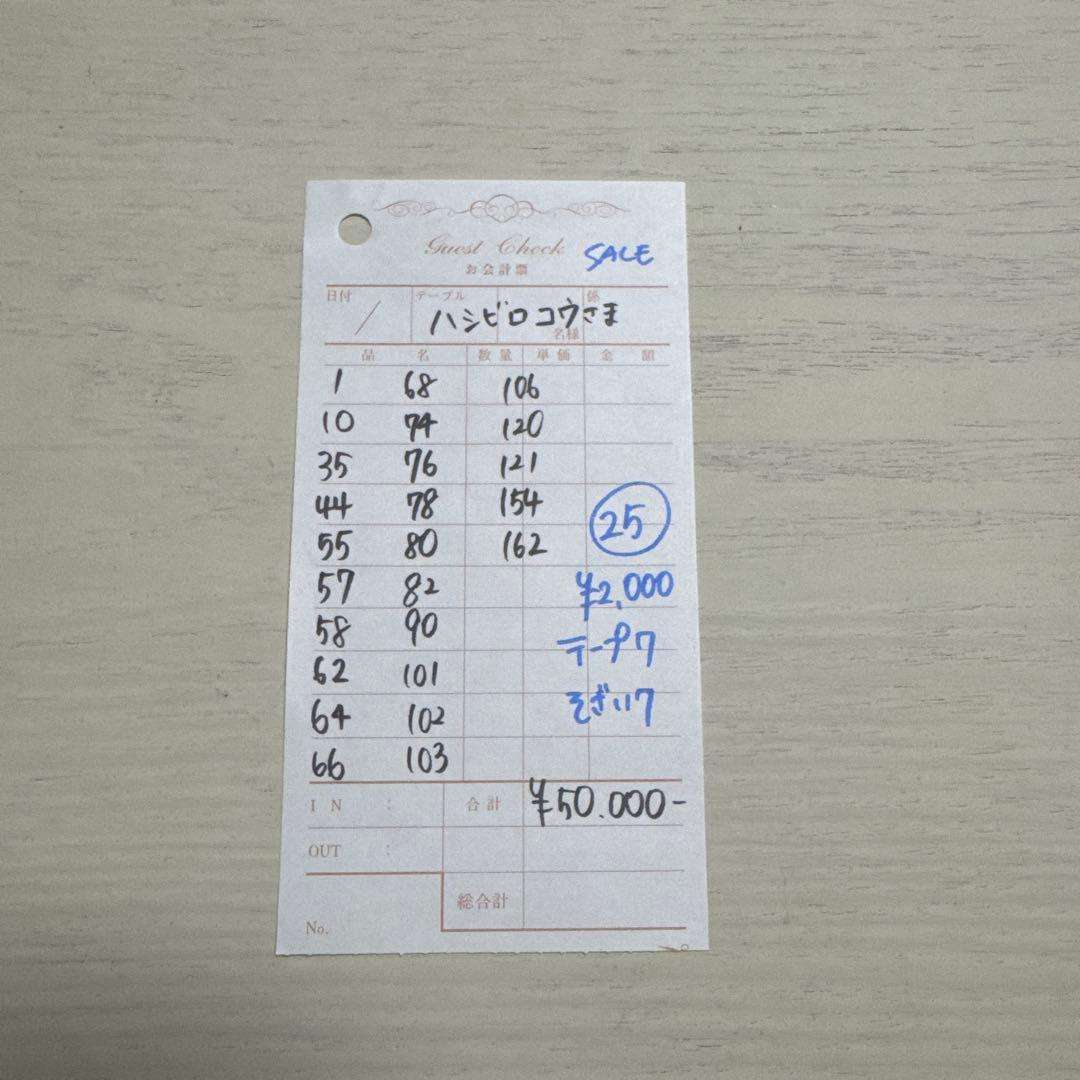 Guest Check SALE
お会計票
日付 / テーブル 係
ハシビロコウさま
名様
品名 数量 単価 金額
1 68 106
10 74 120
35 76 121
44 78 154
55 80 162 25
57 82 ¥2,000
58 90 テープ7
62 101
64 102 そざい7
66 103
IN : 合計 ¥50.000-
OUT :
総合計
No.